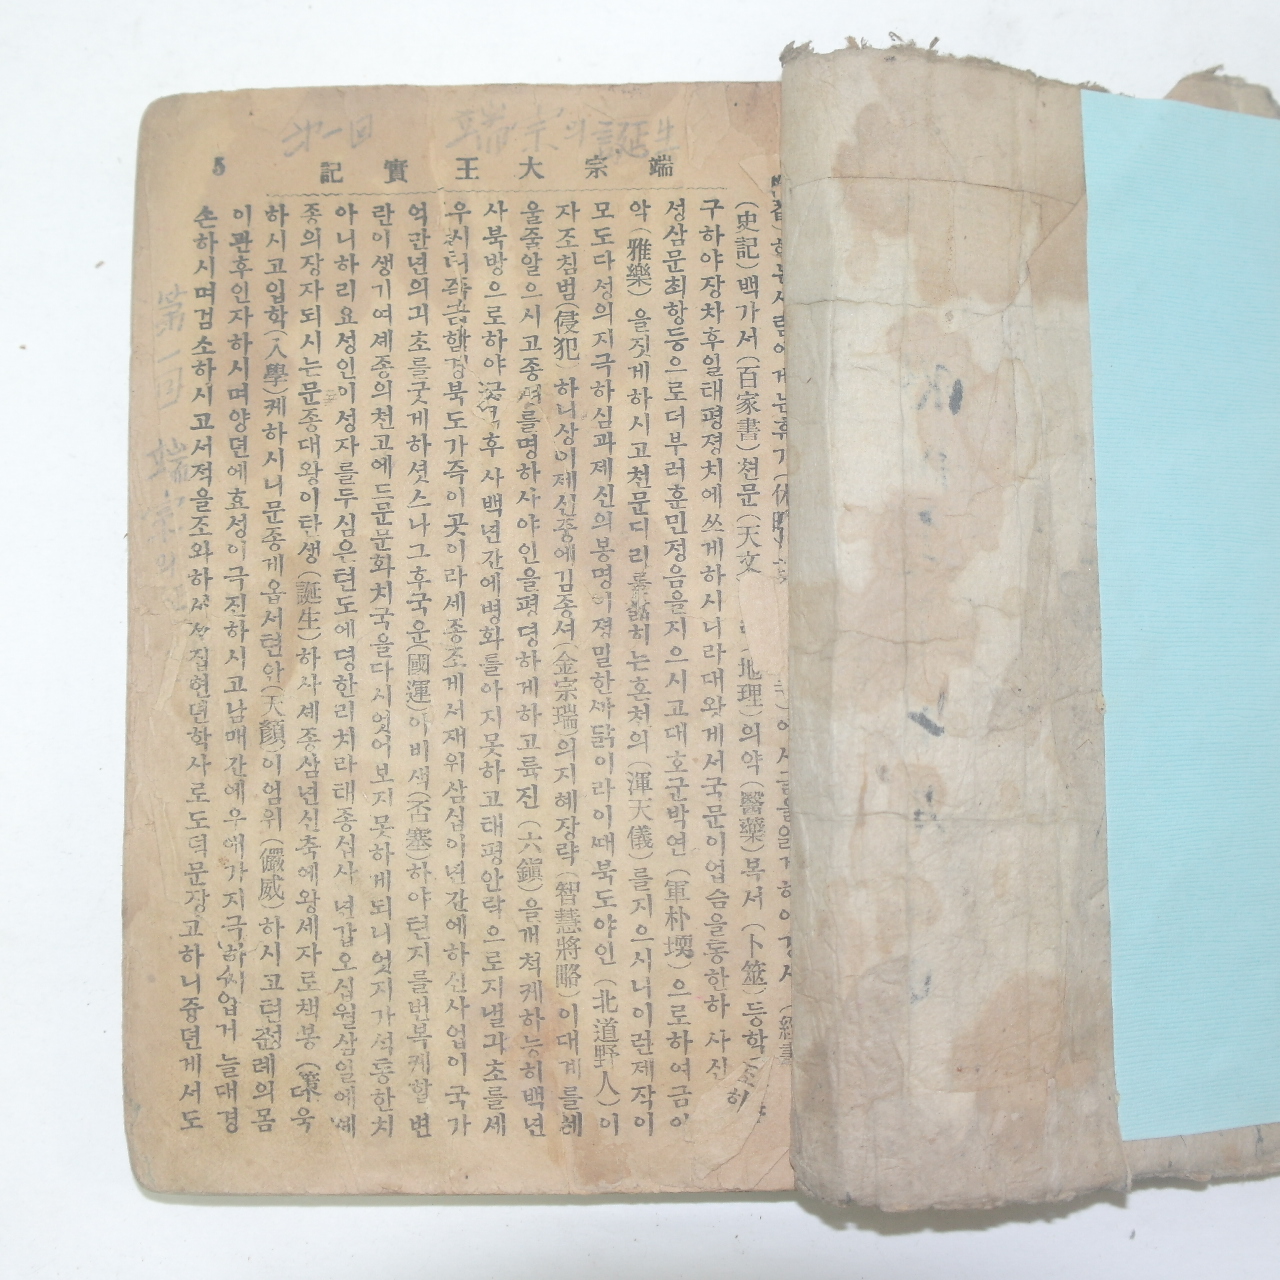 第一回 端宗의 誕生
端宗大王實記 5
(史記)백가서(百家書)천문(天文 (地理)의약(醫藥)복서(卜筮)등학
구하야장차후일태평졍치에쓰게하시니라대왕게서국문이업슴을통한하사신
성삼문최항등으로더부러훈민정음을지으시고대호군박연(軍朴堧)으로하여금아
악(雅樂)을짓게하시고천문디리를 히는혼천의(渾天儀)를지으시니이란졔작이
모도다성의지극하심과졔신의봉명이졍말한까닭이라이때북도야인(北道野人)이
자조침범(侵犯)하니상이졔신중에김종셔(金宗瑞)의지혜장략(智慧將略)이대계를세
울줄알으시고종셔를명하사야인을평뎡하게하고륙진(六鎭)을개척케하능히백년
사북방으로하야 후사백년간에병화를아지못하고태평안락으로지낼긔초를세
우시 함경북도가즉이곳이라세종조게서재위삼십이년간에하신사업이국가
억만년의긔초를굿게하셧스나그후국운(國運)이비색(否塞)하야텬지를번복케할변
란이생기여셰종의천고에드문문화치국을다시엇어보지못하게되니엇지가석통한치
아니하리요성인이성자를두심은텬도에뎡한리치라태종십사년갑오십월삼일에셰
종의장자되시는문종대왕이탄생(誕生)하사셰종삼년신축에왕세자로책봉(冊 더욱
하시고입학(入學)케하시니문종게옵서텬안(天顔)이엄위(儼威)하시고 례의몸
이관후인자하시며양뎐에효성이극진하시고남매간에우애가지극하시업거늘대경
손하시며검소하시고서적을조와하사 집현뎐학사로도덕문장고하니즁뎐게서도
第一回 端宗의